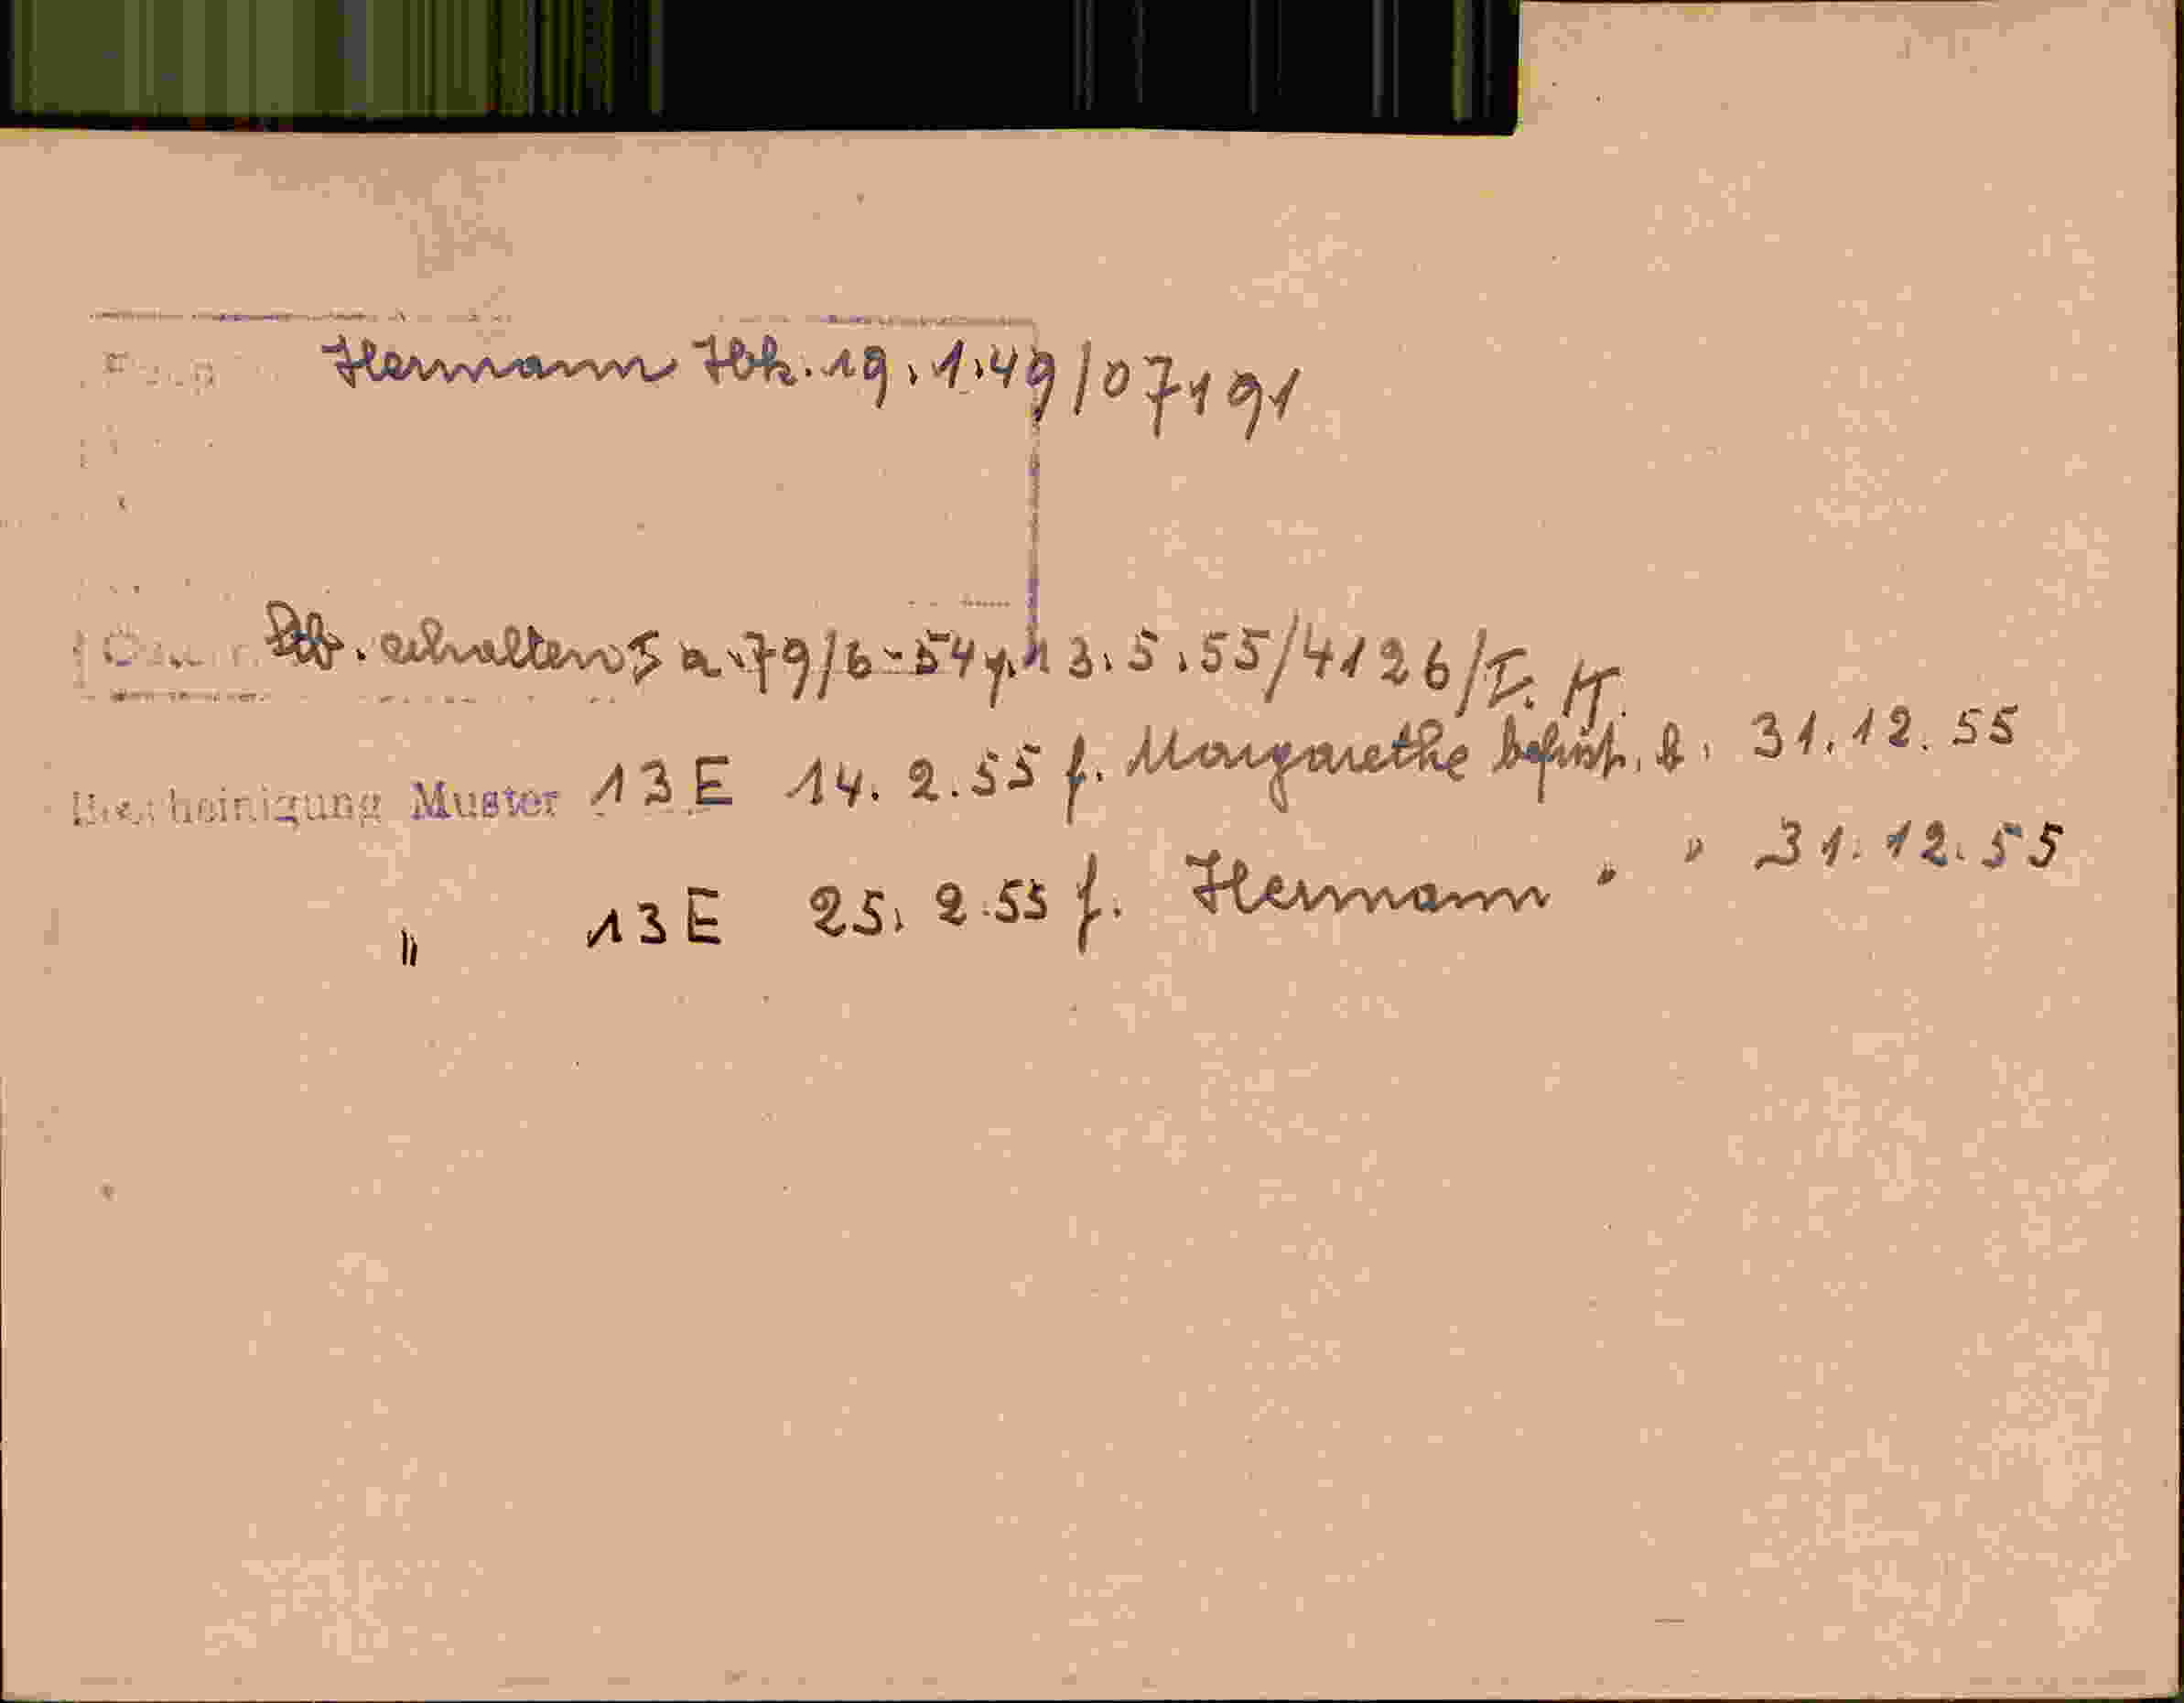 Hermann Hbk. 19.1.49/07191
Stb. erhalten 5 a.79/6-54 v. 13.5.55/4126/I. H.
Bescheinigung Muster 13 E 14. 2. 55 f. Margarethe befrist. b. 31. 12. 55
" 13 E 25. 2. 55 f. Hermann " " 31. 12. 55